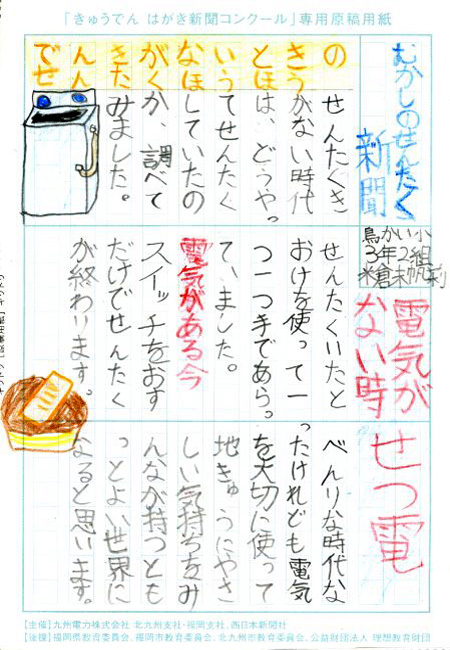 「きゅうでん はがき新聞コンクール」専用原稿用紙
むかしのせんたく
新聞
鳥かい小
3年2組
米倉未帆莉
でんきがないときの
せんたくほうほう
せんたくき
がない時代
は、どうやっ
てせんたく
していたの
か、調べて
みました。
電気が
ない時
せんたくいたと
おけを使って一
つ一つ手であらっ
ていました。
電気がある今
スイッチをおす
だけでせんたく
が終わります。
せつ電
べんりな時代な
ったけれども電気
を大切に使って
地きゅうにやさ
しい気持ちをみ
んなが持つとも
っとよい世界に
なると思います。
【主催】九州電力株式会社 北九州支社・福岡支社、西日本新聞社
【後援】福岡県教育委員会、福岡市教育委員会、北九州市教育委員会、公益財団法人 理想教育財団